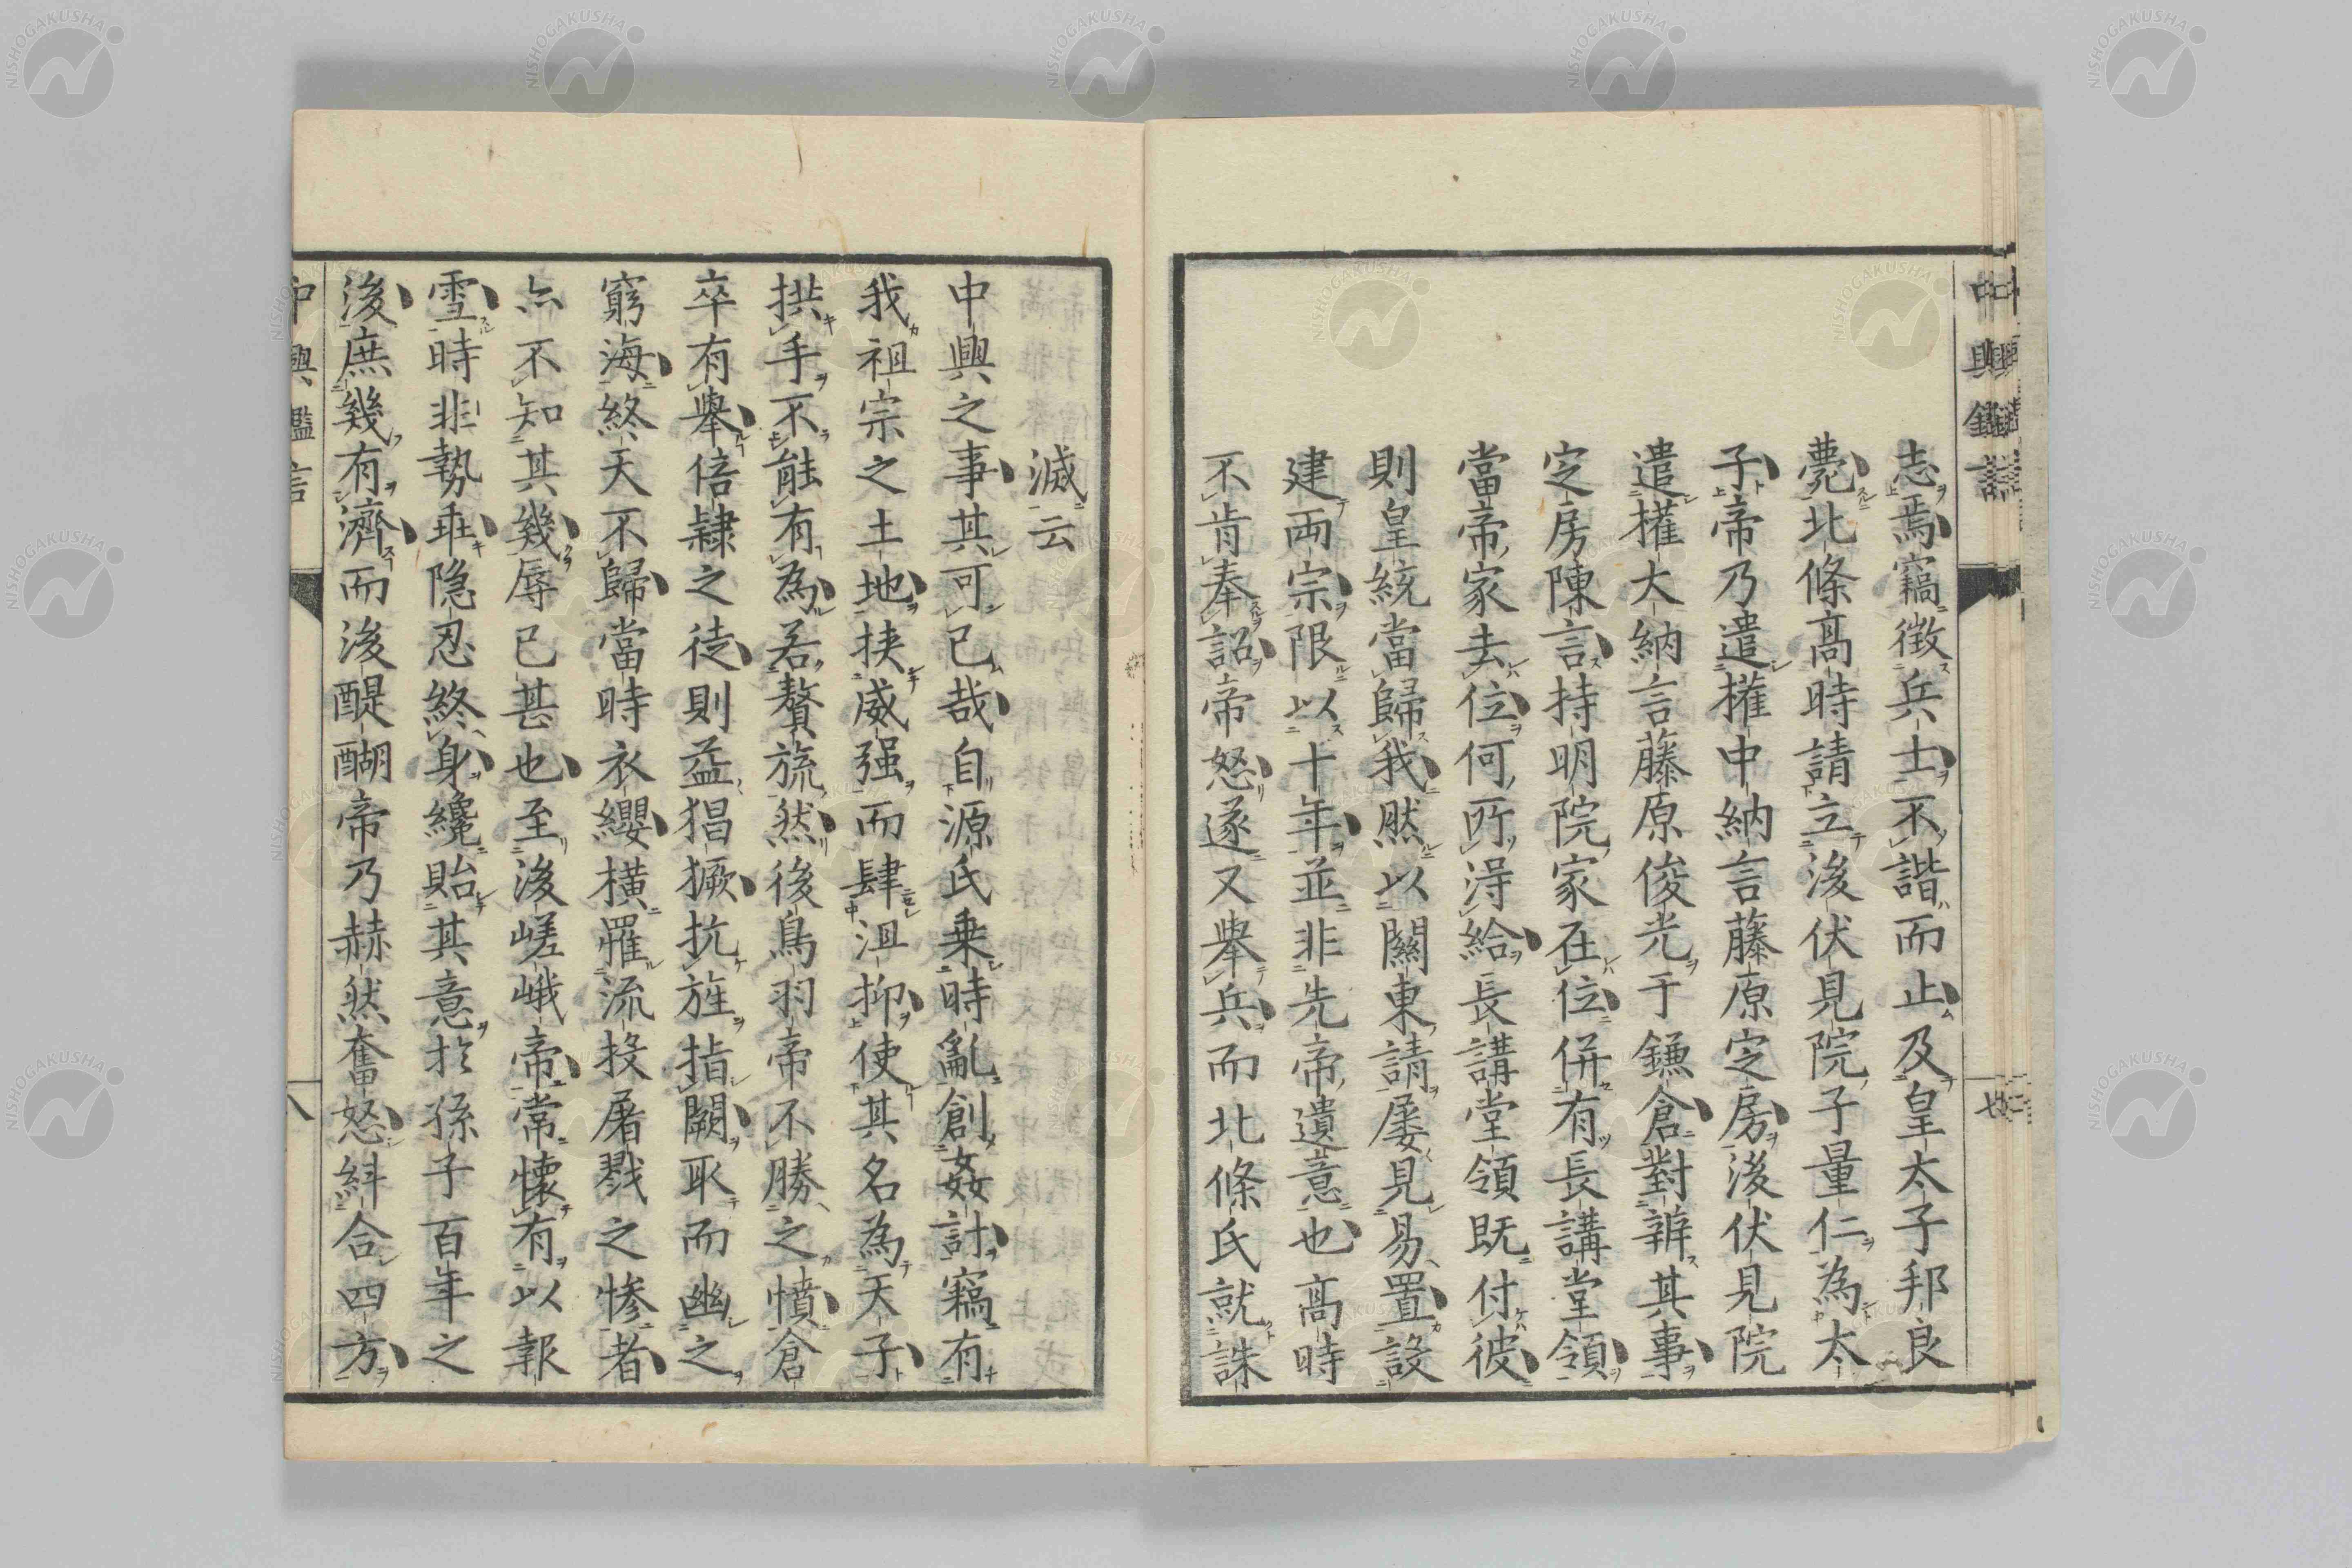 志焉竊徵兵士不諧而止及皇太子邦良
薨北條高時請立後伏見院子量仁為太
子帝乃遣權中納言藤原定房後伏見院
遣權大納言藤原俊光于鎌倉對辨其事
定房陳言持明院家在位併有長講堂領
當帝家去位何所得給長講堂領既付彼
則皇統當歸我然以關東請屢見易置設
建兩宗限以十年並非先帝遺意也高時
不肯奉詔帝怒遂又擧兵而北條氏就誅
滅云
中興之事其可已哉自源氏乗時亂創姦計竊有
我祖宗之土地挟威强而肆沮抑使其名為天子
拱手不能有為若贅旒然後鳥羽帝不勝之憤倉
卒有擧倍隷之徒則益猖獗抗旌指闕取而幽之
窮海終天不歸當時衣纓橫罹流投屠戮之惨者
亦不知其幾辱已甚也至後嵯峨帝常懷有以報
雪時非勢乖隐忍終身纔貽其意於孫子百年之
後庶幾有濟而後醍醐帝乃赫然奮怒糾合四方
中興鑑言
八